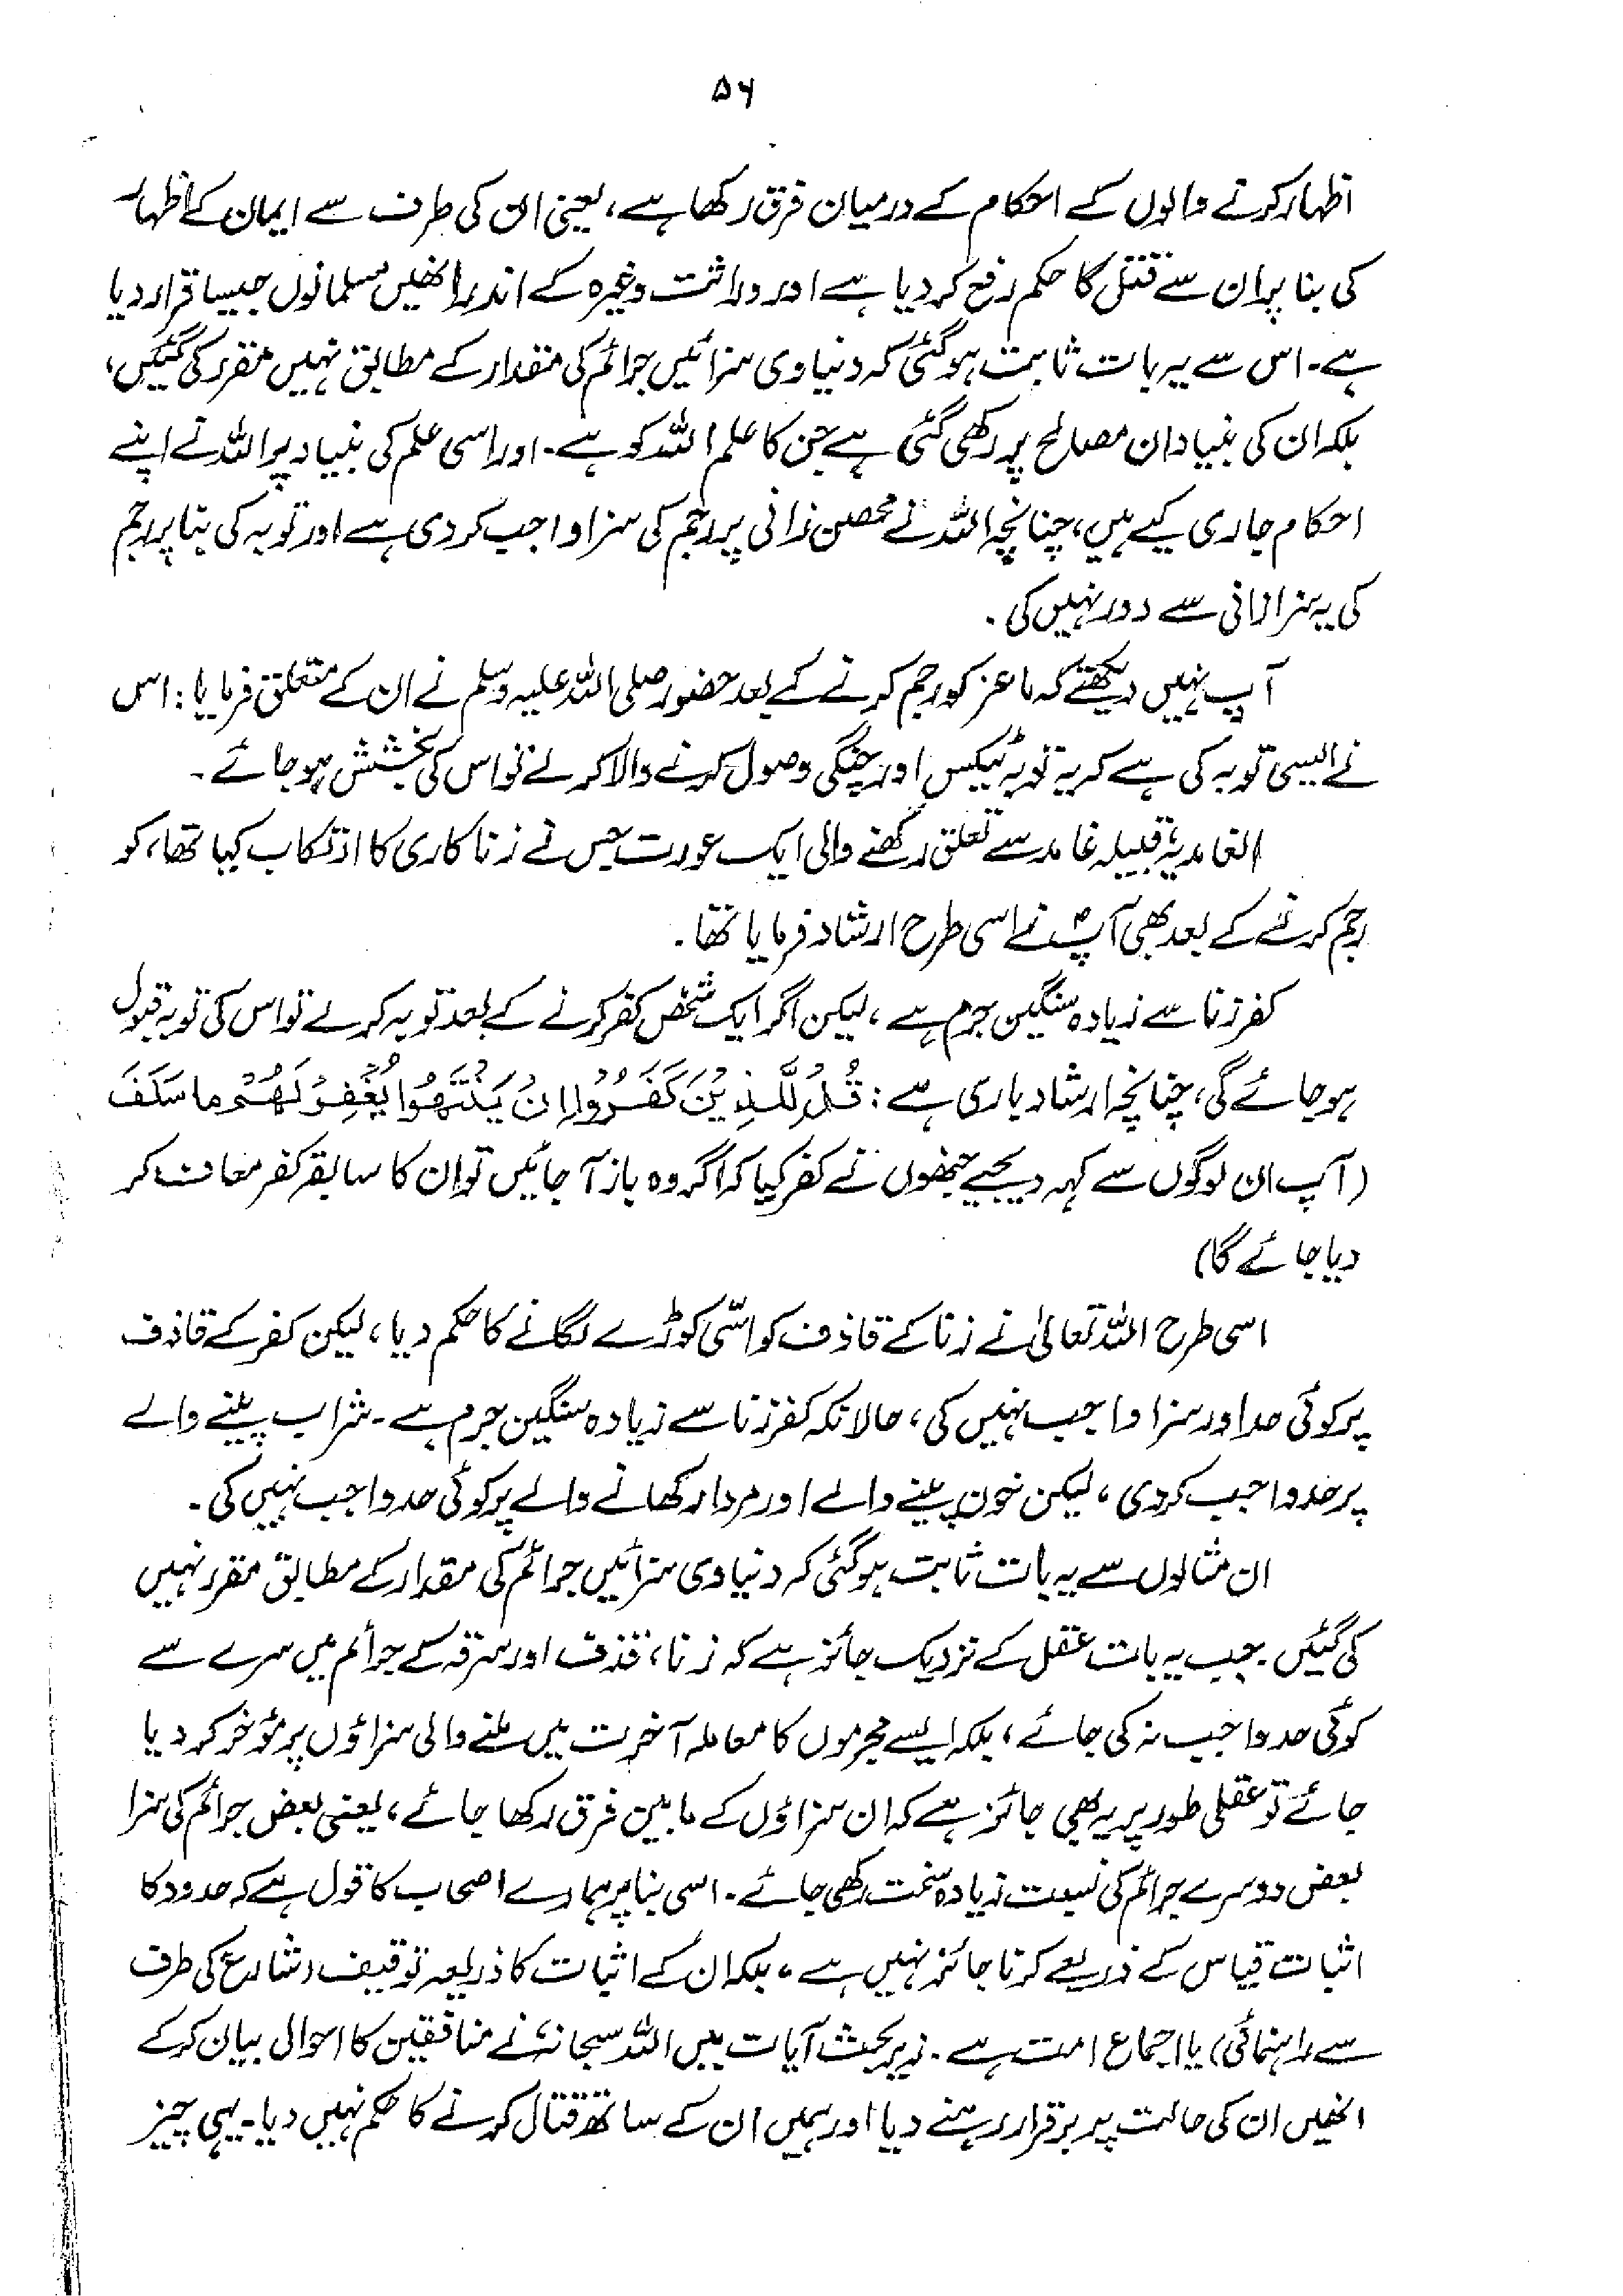 ۵۶
اظہار کرنے والوں کے احکام کے درمیان فرق رکھا ہے، یعنی ان کی طرف سے ایمان کے اظہار
کی بنا پر ان سے قتل کا حکم رفع کر دیا ہے اور وراثت وغیرہ کے اندر انھیں مسلمانوں جیسا قرار دیا
ہے۔ اس سے یہ بات ثابت ہو گئی کہ دنیاوی سزائیں جرائم کی مقدار کے مطابق نہیں مقرر کی گئیں،
بلکہ ان کی بنیاد ان مصالح پر رکھی گئی ہے جن کا علم اللہ کو ہے۔ اور اسی علم کی بنیاد پر اللہ نے اپنے
احکام جاری کیے ہیں، چنانچہ اللہ نے محصن زانی پر رجم کی سزا واجب کر دی ہے اور توبہ کی بنا پر رجم
کی یہ سزا زانی سے دور نہیں کی۔
آپ نہیں دیکھتے کہ ماعز کو رجم کرنے کے بعد حضور صلی اللہ علیہ وسلم نے ان کے متعلق فرمایا: اس
نے ایسی توبہ کی ہے کہ یہ توبہ ٹیکس اور چنگی وصول کرنے والا کر لے تو اس کی بخشش ہو جائے۔
الغامدیۃ قبیلہ غامد سے تعلق رکھنے والی ایک عورت جس نے زنا کاری کا ارتکاب کیا تھا، کو
رجم کرنے کے بعد بھی آپؐ نے اسی طرح ارشاد فرمایا تھا۔
کفر زنا سے زیادہ سنگین جرم ہے، لیکن اگر ایک شخص کفر کرنے کے بعد توبہ کر لے تو اس کی توبہ قبول
ہو جائے گی، چنانچہ ارشاد باری ہے: قُلْ لِّلَّذِیْنَ كَفَرُوْا اِنْ یَنْتَهُوْا یُغْفَرْ لَهُمْ ما سَلَفَ
(آپ ان لوگوں سے کہہ دیجیے جنھوں نے کفر کیا کہ اگر وہ باز آ جائیں تو ان کا سابقہ کفر معاف کر
دیا جائے گا)
اسی طرح اللہ تعالیٰ نے زنا کے قاذف کو اسّی کوڑے لگانے کا حکم دیا، لیکن کفر کے قاذف
پر کوئی حد اور سزا واجب نہیں کی، حالانکہ کفر زنا سے زیادہ سنگین جرم ہے۔ شراب پینے والے
پر حد واجب کر دی، لیکن خون پینے والے اور مردار کھانے والے پر کوئی حد واجب نہیں کی۔
ان مثالوں سے یہ بات ثابت ہو گئی کہ دنیاوی سزائیں جرائم کی مقدار کے مطابق مقرر نہیں
کی گئیں۔ جب یہ بات عقل کے نزدیک جائز ہے کہ زنا، قذف اور سرقہ کے جرائم میں سرے سے
کوئی حد واجب نہ کی جائے، بلکہ ایسے مجرموں کا معاملہ آخرت میں ملنے والی سزاؤں پر مؤخر کر دیا
جائے تو عقلی طور پر یہ بھی جائز ہے کہ ان سزاؤں کے مابین فرق رکھا جائے، یعنی بعض جرائم کی سزا
بعض دوسرے جرائم کی نسبت زیادہ سخت رکھی جائے۔ اسی بنا پر ہمارے اصحاب کا قول ہے کہ حدود کا
اثبات قیاس کے ذریعے کرنا جائز نہیں ہے، بلکہ ان کے اثبات کا ذریعہ توقیف (شارع کی طرف
سے راہنمائی) یا اجماع امت ہے۔ زیر بحث آیات میں اللہ سبحانہٗ نے منافقین کا احوال بیان کر کے
انھیں ان کی حالت پر برقرار رہنے دیا اور ہمیں ان کے ساتھ قتال کرنے کا حکم نہیں دیا۔ یہی چیز